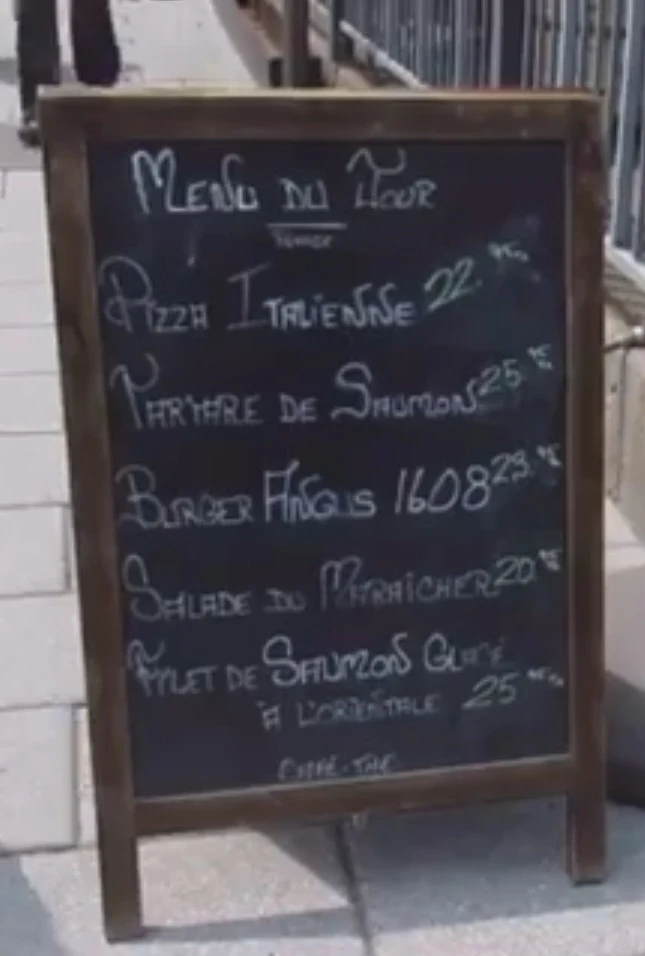 MENU DU JOUR
PIZZA ITALIENNE 22
TARTARE DE SAUMON 25
BURGER ANGUS 1608 23
SALADE DU MARAICHER 20
FILET DE SAUMON GLACÉ
À L'ORIENTALE 25
CAFÉ-THÉ